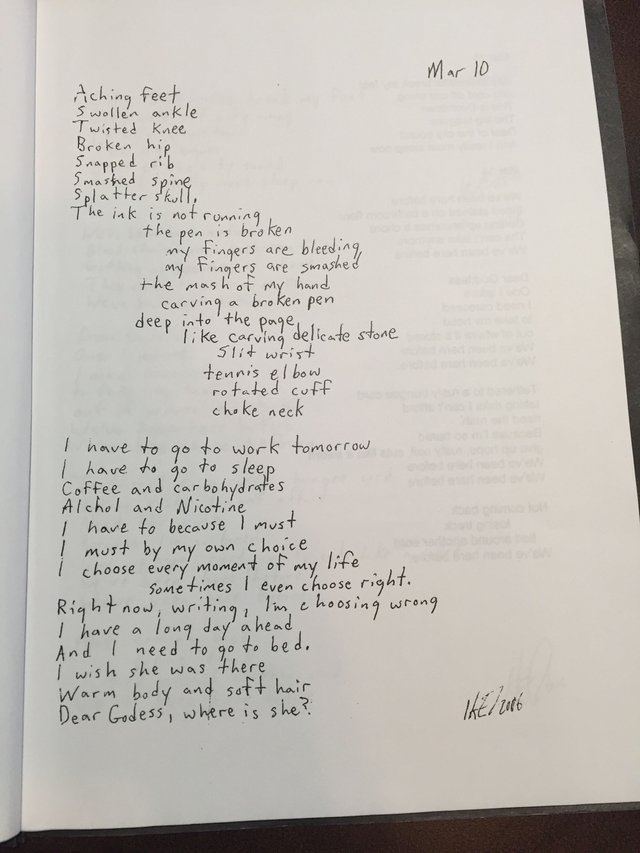 Mar 10
Aching feet
Swollen ankle
Twisted Knee
Broken hip
Snapped rib
Smashed spine
Splatter skull.
The ink is not running
the pen is broken
my fingers are bleeding
my fingers are smashed
the mash of my hand
carving a broken pen
deep into the page
like carving delicate stone
Slit wrist
tennis elbow
rotated cuff
choke neck
I have to go to work tomorrow
I have to go to sleep
Coffee and carbohydrates
Alchol and Nicotine
I have to because I must
I must by my own choice
I choose every moment of my life
sometimes I even choose right.
Right now, writing, I'm choosing wrong
I have a long day ahead
And I need to go to bed.
I wish she was there
Warm body and soft hair
Dear Godess, where is she?
/2006